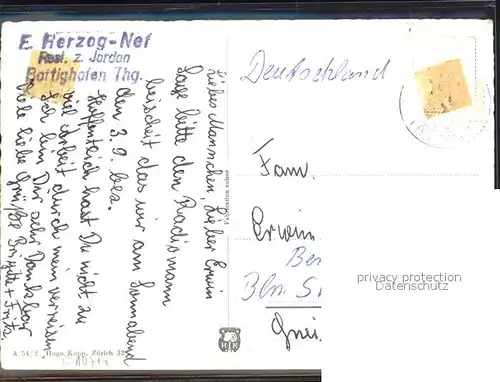 E. Herzog-Nef
Rest. z. Jordan
Bottighofen Thg.
Liebes Mannchen, Lieber Erwin
Sage bitte den Radiomann
bescheit das wir am Sonnabend
den 3.9. bes.
Hoffentlich hast Du nicht zu
viel Arbeit durch mein verreisen
Ich bin Dir sehr Dankbar
Viele liebe Grüße Brigitte + Fritz.
Fabrication suisse
A 51/2 Hugo Kopp, Zürich 32
Deutschland
Fam.
Erwin
Ber
Bln. S
Gnei
privacy protection
Datenschutz